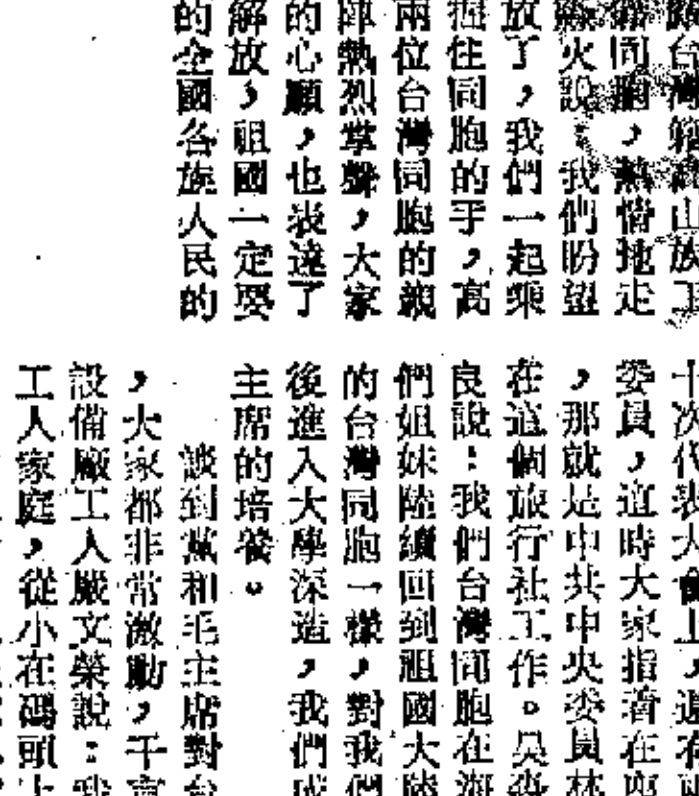 台灣籍高山族工
同胞，熱情地走
火說：我們盼望
放了，我們一起乘
握住同胞的手，高
兩位台灣同胞的親
陣熱烈掌聲，大家
的心願，也表達了
解放，祖國一定要
的全國各族人民的
十次代表大會上，還有
委員，這時大家指著在座
，那就是中共中央委員林
在這個旅行社工作。吳森
良說：我們台灣同胞在海
們姐妹陸續回到祖國大陸
的台灣同胞一樣，對我們
後進入大學深造，我們成
主席的培養。
談到黨和毛主席對台
，大家都非常激動，千言
設備廠工人嚴文榮說：我
工人家庭，從小在碼頭上